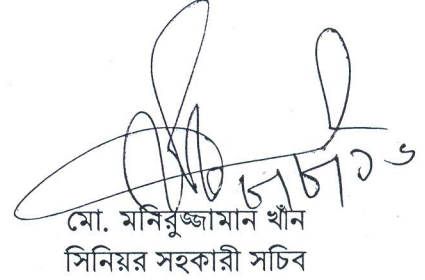 মো. মনিরুজ্জামান খাঁন
সিনিয়র সহকারী সচিব